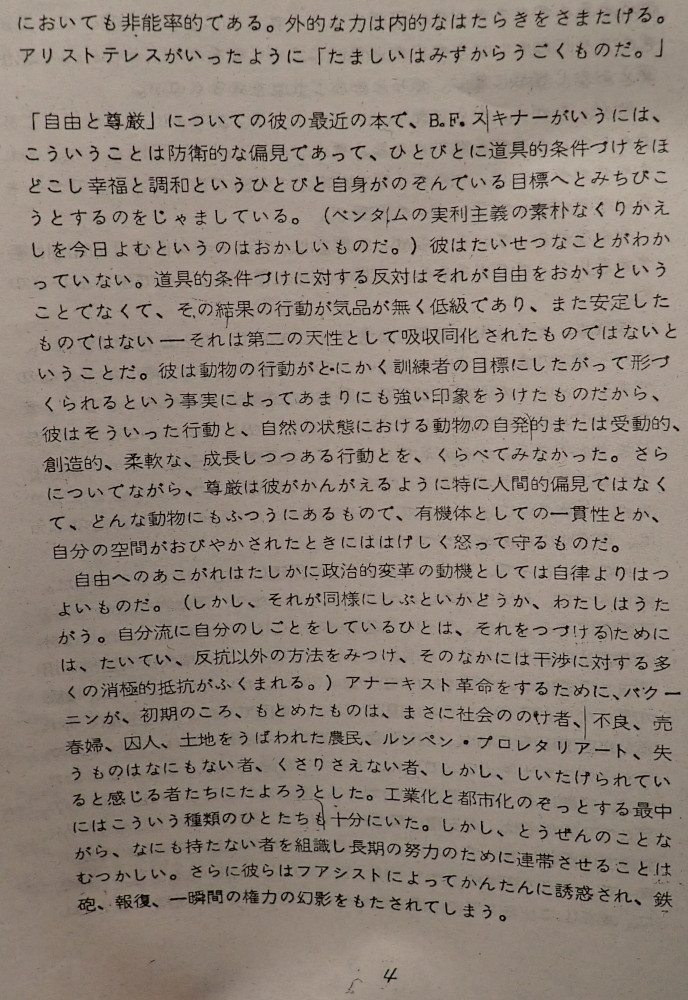 においても非能率的である。外的な力は内的なはたらきをさまたげる。
アリストテレスがいったように「たましいはみずからうごくものだ。」
「自由と尊厳」についての彼の最近の本で、B.F.スキナーがいうには、
こういうことは防衛的な偏見であって、ひとびとに道具的条件づけをほ
どこし幸福と調和というひとびと自身がのぞんでいる目標へとみちびこ
うとするのをじゃましている。（ベンタムの実利主義の素朴なくりかえ
しを今日よむというのはおかしいものだ。）彼はたいせつなことがわか
っていない。道具的条件づけに対する反対はそれが自由をおかすという
ことでなくて、その結果の行動が気品が無く低級であり、また安定した
ものではない──それは第二の天性として吸収同化されたものではないと
いうことだ。彼は動物の行動がとにかく訓練者の目標にしたがって形づ
くられるという事実によってあまりにも強い印象をうけたものだから、
彼はそういった行動と、自然の状態における動物の自発的または受動的、
創造的、柔軟な、成長しつつある行動とを、くらべてみなかった。さら
についてながら、尊厳は彼がかんがえるように特に人間的偏見ではなく
て、どんな動物にもふつうにあるもので、有機体としての一貫性とか、
自分の空間がおびやかされたときにははげしく怒って守るものだ。
自由へのあこがれはたしかに政治的変革の動機としては自律よりはつ
よいものだ。（しかし、それが同様にしぶといかどうか、わたしはうた
がう。自分流に自分のしごとをしているひとは、それをつづけるために
は、たいてい、反抗以外の方法をみつけ、そのなかには干渉に対する多
くの消極的抵抗がふくまれる。）アナーキスト革命をするために、バクー
ニンが、初期のころ、もとめたものは、まさに社会ののけ者、不良、売
春婦、囚人、土地をうばわれた農民、ルンペン・プロレタリアート、失
うものはなにもない者、くさりさえない者、しかし、しいたげられてい
ると感じる者たちにたよろうとした。工業化と都市化のぞっとする最中
にはこういう種類のひとたちも十分にいた。しかし、とうぜんのことな
がら、なにも持たない者を組織し長期の努力のために連帯させることは
むつかしい。さらに彼らはフアシストによってかんたんに誘惑され、鉄
砲、報復、一瞬間の権力の幻影をもたされてしまう。
4